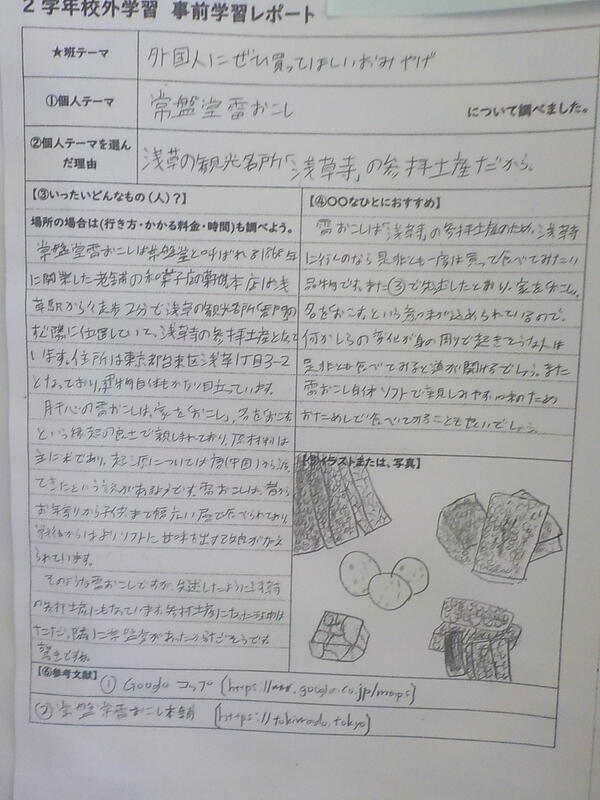 2学年校外学習 事前学習レポート
★班テーマ
外国人にぜひ買ってほしいおみやげ
①個人テーマ
常盤堂雷おこし
について調べました。
②個人テーマを選んだ理由
浅草の観光名所「浅草寺」の参拝土産だから。
【③いったいどんなもの(人)?】
場所の場合は(行き方・かかる料金・時間)も調べよう。
常盤堂雷おこしは常盤堂と呼ばれる
に開業した老舗の和菓子店 本店は浅
草駅から徒歩2分で浅草の観光名所「雷門」の
隣に位置していて、浅草寺の参拝土産となって
います。住所は東京都台東区浅草1丁目3-2
となっており、建物自体もかなり目立っています。
肝心の雷おこしは、「家をおこし」、名をおこす
という縁起の良さで親しまれており、原材料は
主に米であり、起源については唐(中国)から渡っ
てきたという説があるようです。雷おこしは、昔から
お年寄りから子供まで幅広い層で食べられており、
ソフトに甘味を出す
られています。
そのような雷おこしですが、先述したように浅草寺
の参拝土産にもなっています。参拝土産になった理由は
ただ、隣に常盤堂があったからだそうです。
驚きですね。
【④〇〇なひとにおすすめ】
雷おこしは「浅草寺」の参拝土産のため、浅草寺
に行くのなら是非とも一度は買って食べてみたい
品物です。また③で先述したとおり、家をおこし、
名をおこすという意味が込められているので、
何かしらの変化が身の周りで起きそうな人は
是非とも食べてみると道が開けるでしょう。また
雷おこし自体ソフトで親しみやすい味のため
おためしで食べてみることも良いでしょう。
【⑤イラストまたは、写真】
【⑥参考文献】
① Google マップ (https://www.google.co.jp/maps)
② 常盤堂雷おこし本舗 (https://tokiwado.tokyo)